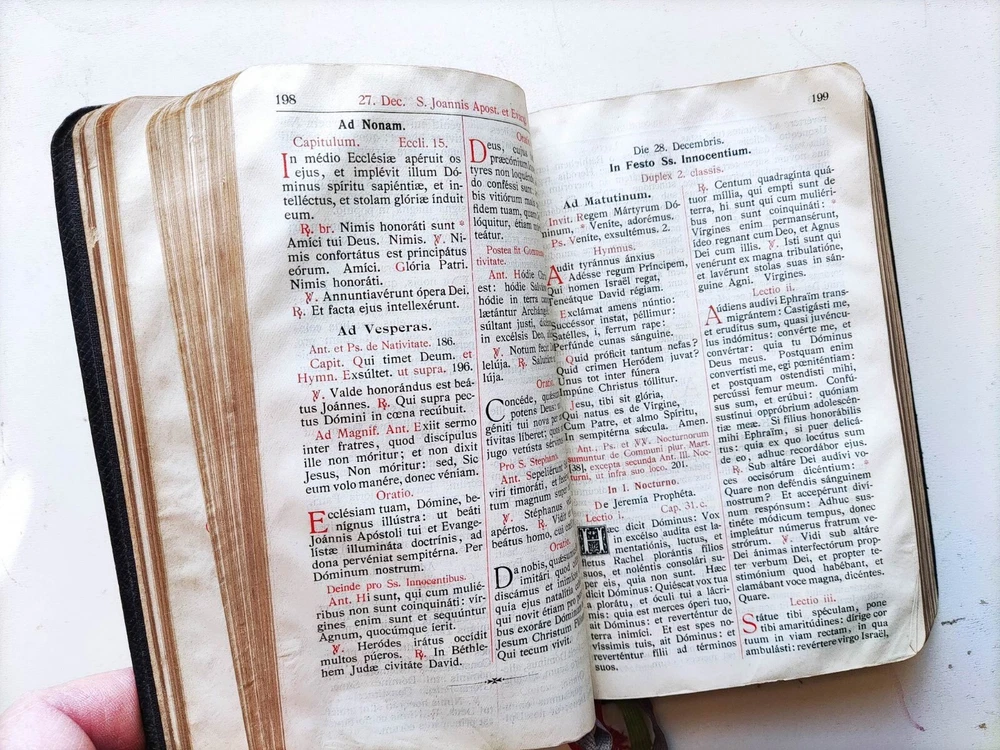 198
27. Dec. S. Joannis Apost. et
Ad Nonam.
Capitulum. Eccli. 15.
In médio Ecclésiæ apéruit os
ejus, et implévit illum Dó-
minus spíritu sapiéntiæ, et in-
telléctus, et stolam glóriæ índuit
eum.
℟. br. Nimis honoráti sunt *
Amíci tui Deus. Nimis. ℣. Ni-
mis confortátus est principátus
eórum. Amíci. Glória Patri.
Nimis honoráti.
℣. Annuntiavérunt ópera Dei.
℟. Et facta ejus intellexérunt.
Ad Vesperas.
Ant. et Ps. de Nativitate. 186.
Capit. Qui timet Deum, et
Hymn. Exsúltet. ut supra. 196.
℣. Valde honorándus est beá-
tus Joánnes. ℟. Qui supra pec-
tus Dómini in cœna recúbuit.
Ad Magnif. Ant. Exiit sermo
inter fratres, quod discípulus
ille non móritur; et non dixit
Jesus, Non móritur: sed, Sic
eum volo manére, donec véniam.
Oratio.
Ecclésiam tuam, Dómine, be-
nígnus illústra: ut beáti
Joánnis Apóstoli tui et Evange-
lístæ illumináta doctrínis, ad
dona pervéniat sempitérna. Per
Dóminum nostrum.
Deinde pro Ss. Innocentibus.
Ant. Hi sunt, qui cum mulié-
ribus non sunt coinquináti: vír-
gines enim sunt et sequúntur
Agnum, quocúmque íerit.
℣. Heródes irátus occídit
multos púeros. ℟. In Béthle-
hem Judæ civitáte David.
Deus, cujus
præcónium
tyres non loquéndo
do conféssi sunt
bis vitiórum mala
fidem tuam, quam
lóquitur, étiam
teátur.
Postea fit
tivitate.
Ant. Hódie
est: hódie
hódie in terra
lætántur Archángeli
súltant justi,
in excélsis Deo,
℣. Notum fecit
lelúja. ℟.
lúja.
Concéde,
potens Deus
géniti tui nova per
tivitas líberet;
jugo vetústa
Pro S. Stephano
Ant. Sepeliérunt
viri timoráti, et
tum magnum
℣. Stéphanus
apértos. ℟.
beátus homo, cui
Da nobis, quǽsumus
imitári quod
discámus et inimícos
quia ejus natalítia
qui novit étiam pro
bus exoráre Dóminum
Jesum Christum
Qui tecum vivit.
199
Die 28. Decembris.
In Festo Ss. Innocentium.
Duplex 2. classis.
Ad Matutinum.
Invit. Regem Mártyrum Dó-
minum, * Veníte, adorémus.
Ps. Veníte, exsultémus. 2.
Hymnus.
Audit tyránnus ánxius
Adésse regum Príncipem,
Qui nomen Israël regat,
Teneátque David régiam.
Exclámat amens núntio:
Succéssor instat, péllimur:
Satélles, i, ferrum rape:
Perfúnde cunas sánguine.
Quid próficit tantum nefas?
Quid crimen Heródem juvat?
Unus tot inter fúnera
Impúne Christus tóllitur.
Jesu, tibi sit glória,
Qui natus es de Vírgine,
Cum Patre, et almo Spíritu,
In sempitérna sǽcula. Amen.
Ant., Ps. et ℣℣. Nocturnorum
sumuntur de Communi plur. Mart.
[38], excepta secunda Ant. III. Noc-
turni, ut infra suo loco. 201.
In I. Nocturno.
De Jeremía Prophéta.
Lectio i. Cap. 31. c.
Hæc dicit Dóminus: Vox
in excélso audíta est la-
mentatiónis, luctus, et
fletus Rachel plorántis fílios
suos, et noléntis consolári su-
per eis, quia non sunt. Hæc
dicit Dóminus: Quiéscat vox tua
a plorátu, et óculi tui a lácri-
mis: quia est merces óperi tuo,
ait Dóminus: et reverténtur de
terra inimíci. Et est spes no-
víssimis tuis, ait Dóminus: et
reverténtur fílii ad términos
suos.
℟. Centum quadragínta quá-
tuor míllia, qui empti sunt de
terra, hi sunt qui cum muliéri-
bus non sunt coinquináti: *
Vírgines enim permansérunt,
ídeo regnant cum Deo, et Agnus
Dei cum illis. ℣. Isti sunt qui
venérunt ex magna tribulatióne,
et lavérunt stolas suas in sán-
guine Agni. Vírgines.
Lectio ii.
Audiens audívi Ephraïm trans-
migrántem: Castigásti me,
et erudítus sum, quasi juvéncu-
lus indómitus: convérte me, et
convértar: quia tu Dóminus
Deus meus. Postquam enim
convertísti me, egi pœniténtiam:
et postquam ostendísti mihi,
percússi femur meum. Confú-
sus sum, et erúbui: quóniam
sustínui oppróbrium adolescén-
tiæ meæ. Si fílius honorábilis
mihi Ephraïm, si puer delicá-
tus: quia ex quo locútus sum
de eo, adhuc recordábor ejus.
℟. Sub altáre Dei audívi vo-
ces occisórum dicéntium: *
Quare non deféndis sánguinem
nostrum? Et accepérunt diví-
num respónsum: Adhuc sus-
tinéte módicum tempus, donec
impleátur númerus fratrum ve-
strórum. ℣. Vidi sub altáre
Dei ánimas interfectórum prop-
ter verbum Dei, et propter te-
stimónium quod habébant, et
clamábant voce magna, dicéntes.
Quare.
Lectio iii.
Státue tibi spéculam, pone
tibi amaritúdines: dírige cor
tuum in viam rectam, in qua
ambulásti: revértere virgo Israël,